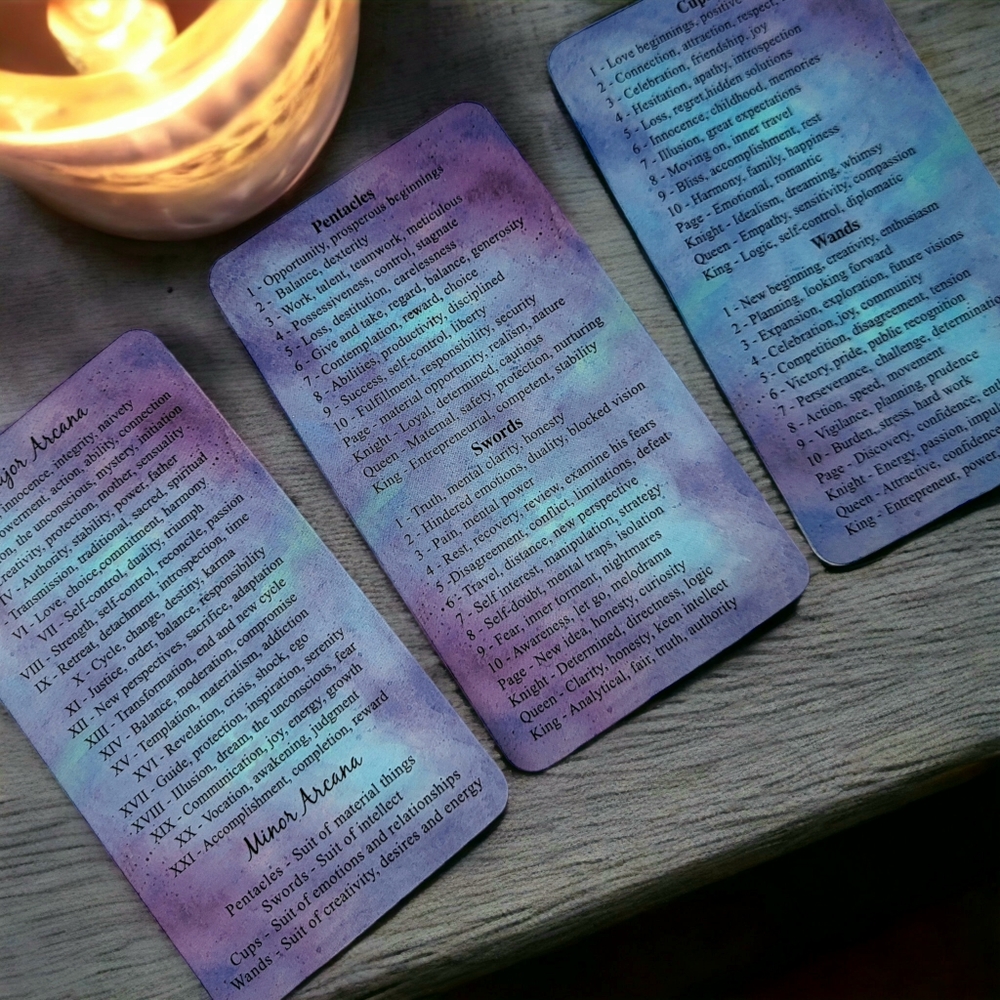 Arcana
innocence, integrity, naivety
action, ability, connection
the unconscious, mystery, initiation
protection, mother, sensuality
Authority, stability, power, father
Transmission, traditional, sacred, spiritual
VI - Love, choice, commitment, harmony
VII - Self-control, duality, triumph
VIII - Strength, self-control, reconcile, passion
IX - Retreat, detachment, introspection, time
X - Cycle, change, destiny, karma
XI - Justice, order, balance, responsibility
XII - New perspectives, sacrifice, adaptation
XIII - Transformation, end and new cycle
XIV - Balance, moderation, compromise
XV - Temptation, materialism, addiction
XVI - Revelation, crisis, shock, ego
XVII - Guide, protection, inspiration, serenity
XVIII - Illusion, dream, the unconscious, fear
XIX - Communication, joy, energy, growth
XX - Vocation, awakening, judgment
XXI - Accomplishment, completion, reward
Minor Arcana
Pentacles - Suit of material things
Swords - Suit of intellect
Cups - Suit of emotions and relationships
Wands - Suit of creativity, desires and energy
Pentacles
1 - Opportunity, prosperous beginnings
2 - Balance, dexterity
3 - Work, talent, teamwork, meticulous
4 - Possessiveness, control, stagnate
5 - Loss, destitution, carelessness
6 - Give and take, regard, balance, generosity
7 - Contemplation, reward, choice
8 - Abilities, productivity, disciplined
9 - Success, self-control, liberty
10 - Fulfillment, responsibility, security
Page - material opportunity, realism, nature
Knight - Loyal, determined, cautious
Queen - Maternal, safety, protection, nurturing
King - Entrepreneurial, competent, stability
Swords
1 - Truth, mental clarity, honesty
2 - Hindered emotions, duality, blocked vision
3 - Pain, mental power
4 - Rest, recovery, review, examine his fears
5 -Disagreement, conflict, limitations, defeat
6 - Travel, distance, new perspective
7 - Self interest, manipulation, strategy
8 - Self-doubt, mental traps, isolation
9 - Fear, inner torment, nightmares
10 - Awareness, let go, melodrama
Page - New idea, honesty, curiosity
Knight - Determined, directness, logic
Queen - Clarity, honesty, keen intellect
King - Analytical, fair, truth, authority
1 - Love beginnings, positive
2 - Connection, attraction, respect,
3 - Celebration, friendship, joy
4 - Hesitation, apathy, introspection
5 - Loss, regret,hidden solutions
6 - Innocence, childhood, memories
7 - Illusion, great expectations
8 - Moving on, inner travel
9 - Bliss, accomplishment, rest
10 - Harmony, family, happiness
Page - Emotional, romantic
Knight - Idealism, dreaming, whimsy
Queen - Empathy, sensitivity, compassion
King - Logic, self-control, diplomatic
Wands
1 - New beginning, creativity, enthusiasm
2 - Planning, looking forward
3 - Expansion, exploration, future visions
4 - Celebration, joy, community
5 - Competition, disagreement, tension
6 - Victory, pride, public recognition
7 - Perseverance, challenge,
8 - Action, speed, movement
9 - Vigilance, planning, prudence
10 - Burden, stress, hard work
Page - Discovery, confidence,
Knight - Energy, passion,
Queen - Attractive, confidence
King - Entrepreneur, power